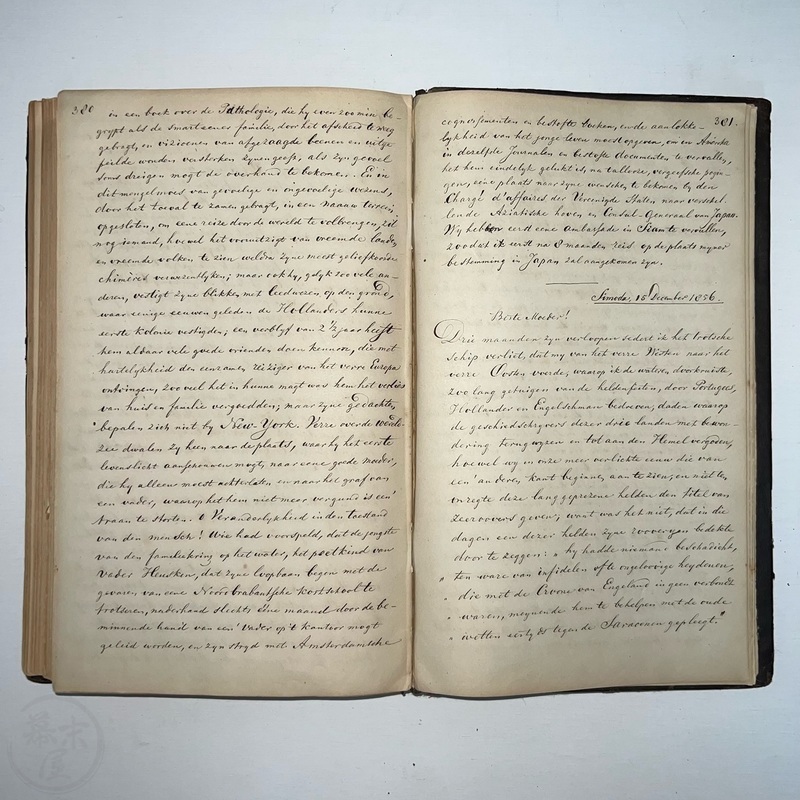 380
in een boek over de Pathologie, die hy even zoo min be-
grypt als de smart eener familie, door het afscheid te weeg
gebragt, en vizioenen van afgezaagde beenen en uitge
peilde wonden versterken zyne geest, als zyn gevoel
soms dreigen mogt de overhand te bekomen. En in
dit mengelmoes van gevoelige en ongevoelige wezens,
door het toeval te zamen gebragt, in een naauw terrein
opgesloten, om eene reize door de wereld te volbrengen, zit
nog iemand, hoewel het vooruitzigt van vreemde landen
en vreemde volken te zien weldra zyne meest geliefkoosde
chimères verwezentlyken; maar ook hy, gelyk zoo vele an-
deren, vestigt zyne blikken met leedwezen op den grond,
waar eenige eeuwen geleden de Hollanders hunne
eerste kolonie vestigden; een verblyf van 2 1/2 jaar heeft
hem aldaar vele goede vrienden doen kennen, die met
hartelykheid den eenzamen reiziger van het verre Europa
ontvingen, zoo veel het in hunne magt was hem het verlies
van huis en familie vergoedden; maar zyne gedachten
bepalen zich niet by New-York. Verre over de wereld-
zee dwalen zy heen naar de plaats, waar hy het eerste
levenslicht aanschouwen mogt, naar eene goede moeder,
die hy alleen moest achterlaten en naar het graf van
een vader, waarop het hem niet meer vergund is een'
traan te storten. O Veranderlykheid in den toestand
van den mensch! Wie had voorspeld, dat de jongste
van den familiekring op het water, het petekind van
Vader Heusken, dat zyne loopbaan begon met de
gevaren van eene Noord brabantsche kostschool te
trotseren, naderhand slechts eene maand door de be-
minnende hand van een' Vader op 't kantoor mogt
geleid worden, en zyn stryd met Amsterdamsche
381.
cognossementen en bestofte boeken, en de aanlokke-
lykheid van het jonge leven moest opgeven, om in Amerika
in dezelfde Journalen en bestofte documenten te vervallen,
het hem eindelyk gelukt is, na tallooze, vergeefsche pogin-
gens, eene plaats naar zyne wenschen te bekomen by den
Chargé d'affaires der Vereenigde Staten naar verschil-
lende Aziatische hoven en Consul-Generaal van Japan.
Wy hebben eerst eene ambassade in Siam te vervullen,
zoodat ik eerst na 8 maanden reis op de plaats myner
bestemming in Japan zal aangekomen zyn.
Simoda, 15 December 1856.
Beste Moeder!
Drie maanden zyn verloopen sedert ik het trotsche
schip verliet, dat my van het verre Westen naar het
verre Oosten voerde, waarop ik de wateren doorkruiste,
zoo lang getuigen van de heldenfeiten, door Portugees,
Hollander en Engelschman bedreven; daden waarop
de geschiedschryvers dezer drie landen met bewon-
dering terug wyzen en tot aan den Hemel vergoden,
hoewel wy in onze meer verlichte eeuw die van
een' anderen kant beginnen aan te zien, en niet ten
onregte deze lang geprezene helden den titel van
Zeeroovers geven, want was het niet, dat in die
dagen een dezer helden zyne rooveryen bedekte
door te zeggen: „hy hadde niemand beschadicht,
„ten ware van infidelen ofte ongeloovige heydenen,
„die met de Croone van Engeland in geen verbondt
„waren, meynende hem te behelpen met de oude
„wetten eertyds tegen de Saracenen gepleegt."